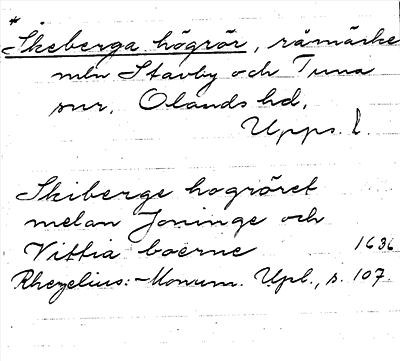 *
Skeberga högrör, råmärke
mln Stavby och Tuna
snr, Olands hd,
Upps. l.
Skiberge hogröret
melan Joninge och
Vittia boerne 1636
Rhezelius: Monum. Upl., s. 107.